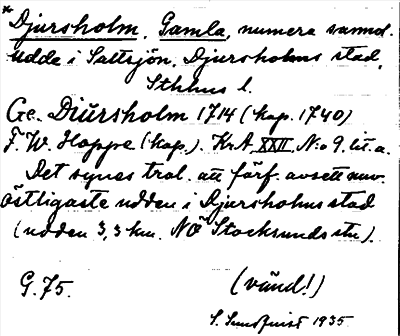 * Djursholm, Gamla, numera sannol.
udde i Saltsjön, Djursholms stad,
Sthlms l.
Ge. Diúrsholm 1714 (kop. 1740)
F. W. Hoppe (kop.). KrA. XXII N:o 9. lit. a.
Det synes trol. att förf. avsett nuv.
östligaste udden i Djursholms stad
(udden 3,3 km. NÖ Stocksunds stn).
G. 75. (vänd!)
S. Sundquist 1935